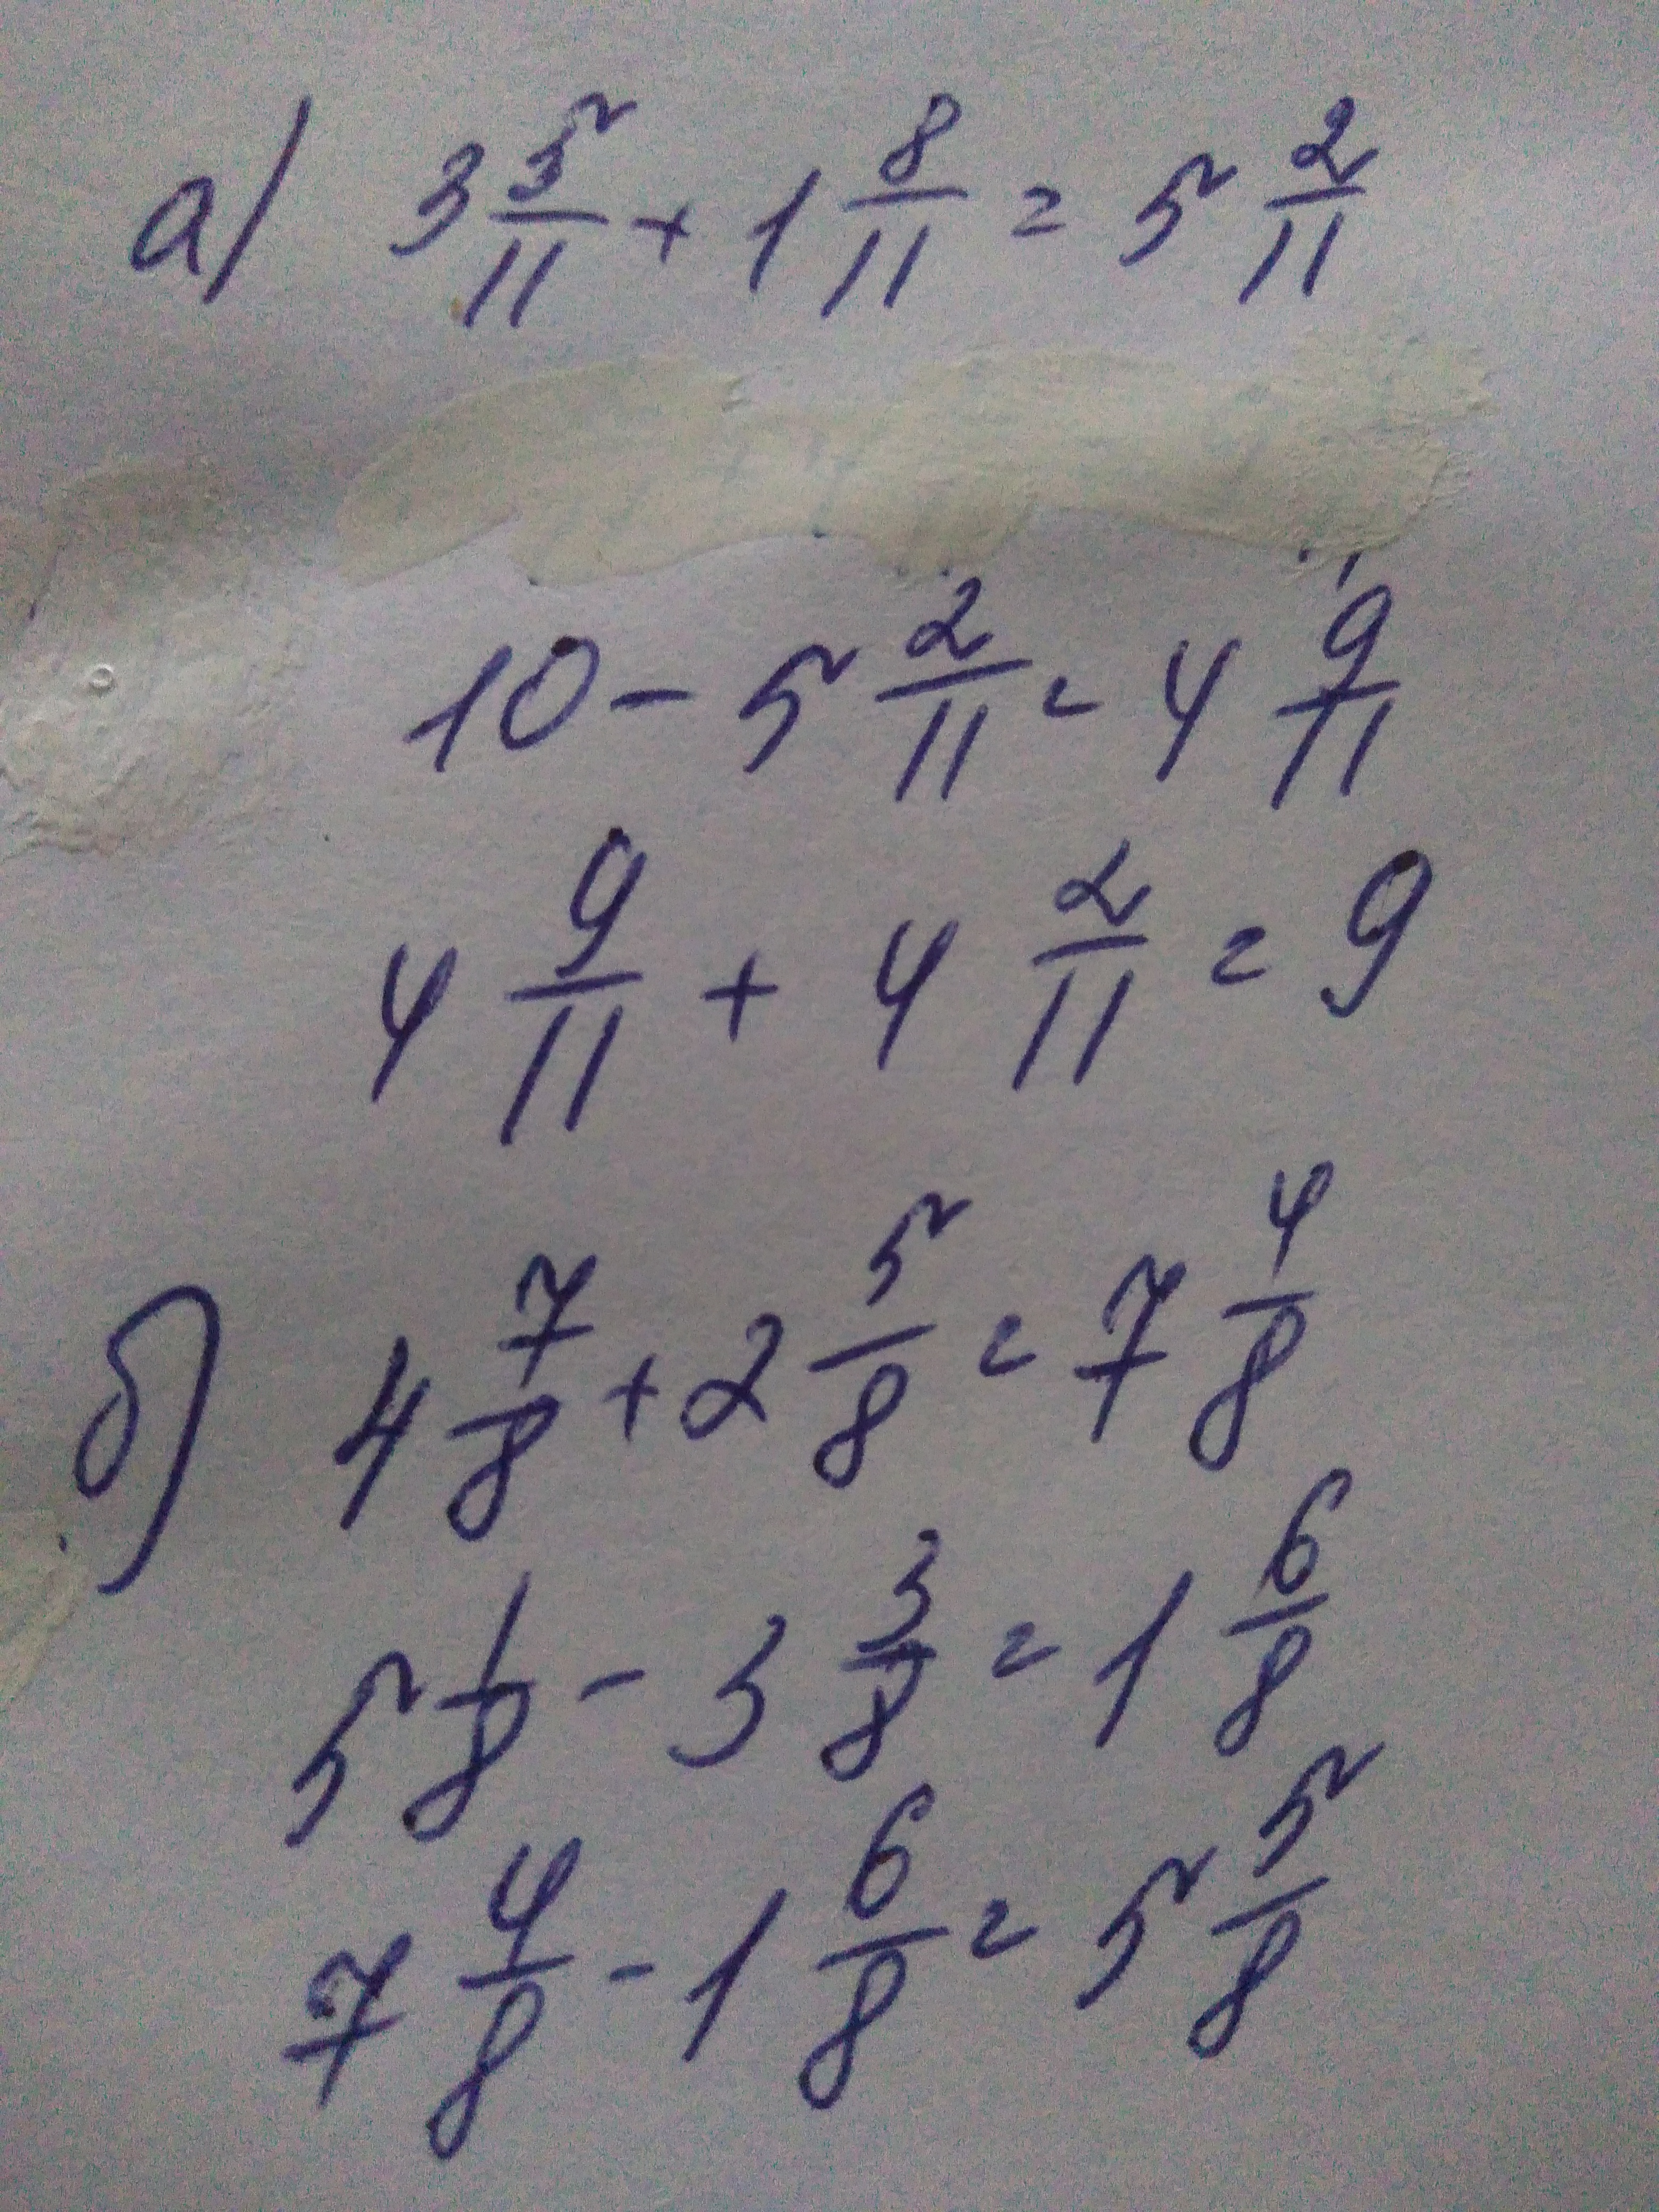 а) 3 5/11 + 1 8/11 = 5 2/11
10 - 5 2/11 = 4 9/11
4 9/11 + 4 2/11 = 9
б) 4 7/8 + 2 5/8 = 7 4/8
5 1/8 - 3 3/8 = 1 6/8
7 4/8 - 1 6/8 = 5 5/8